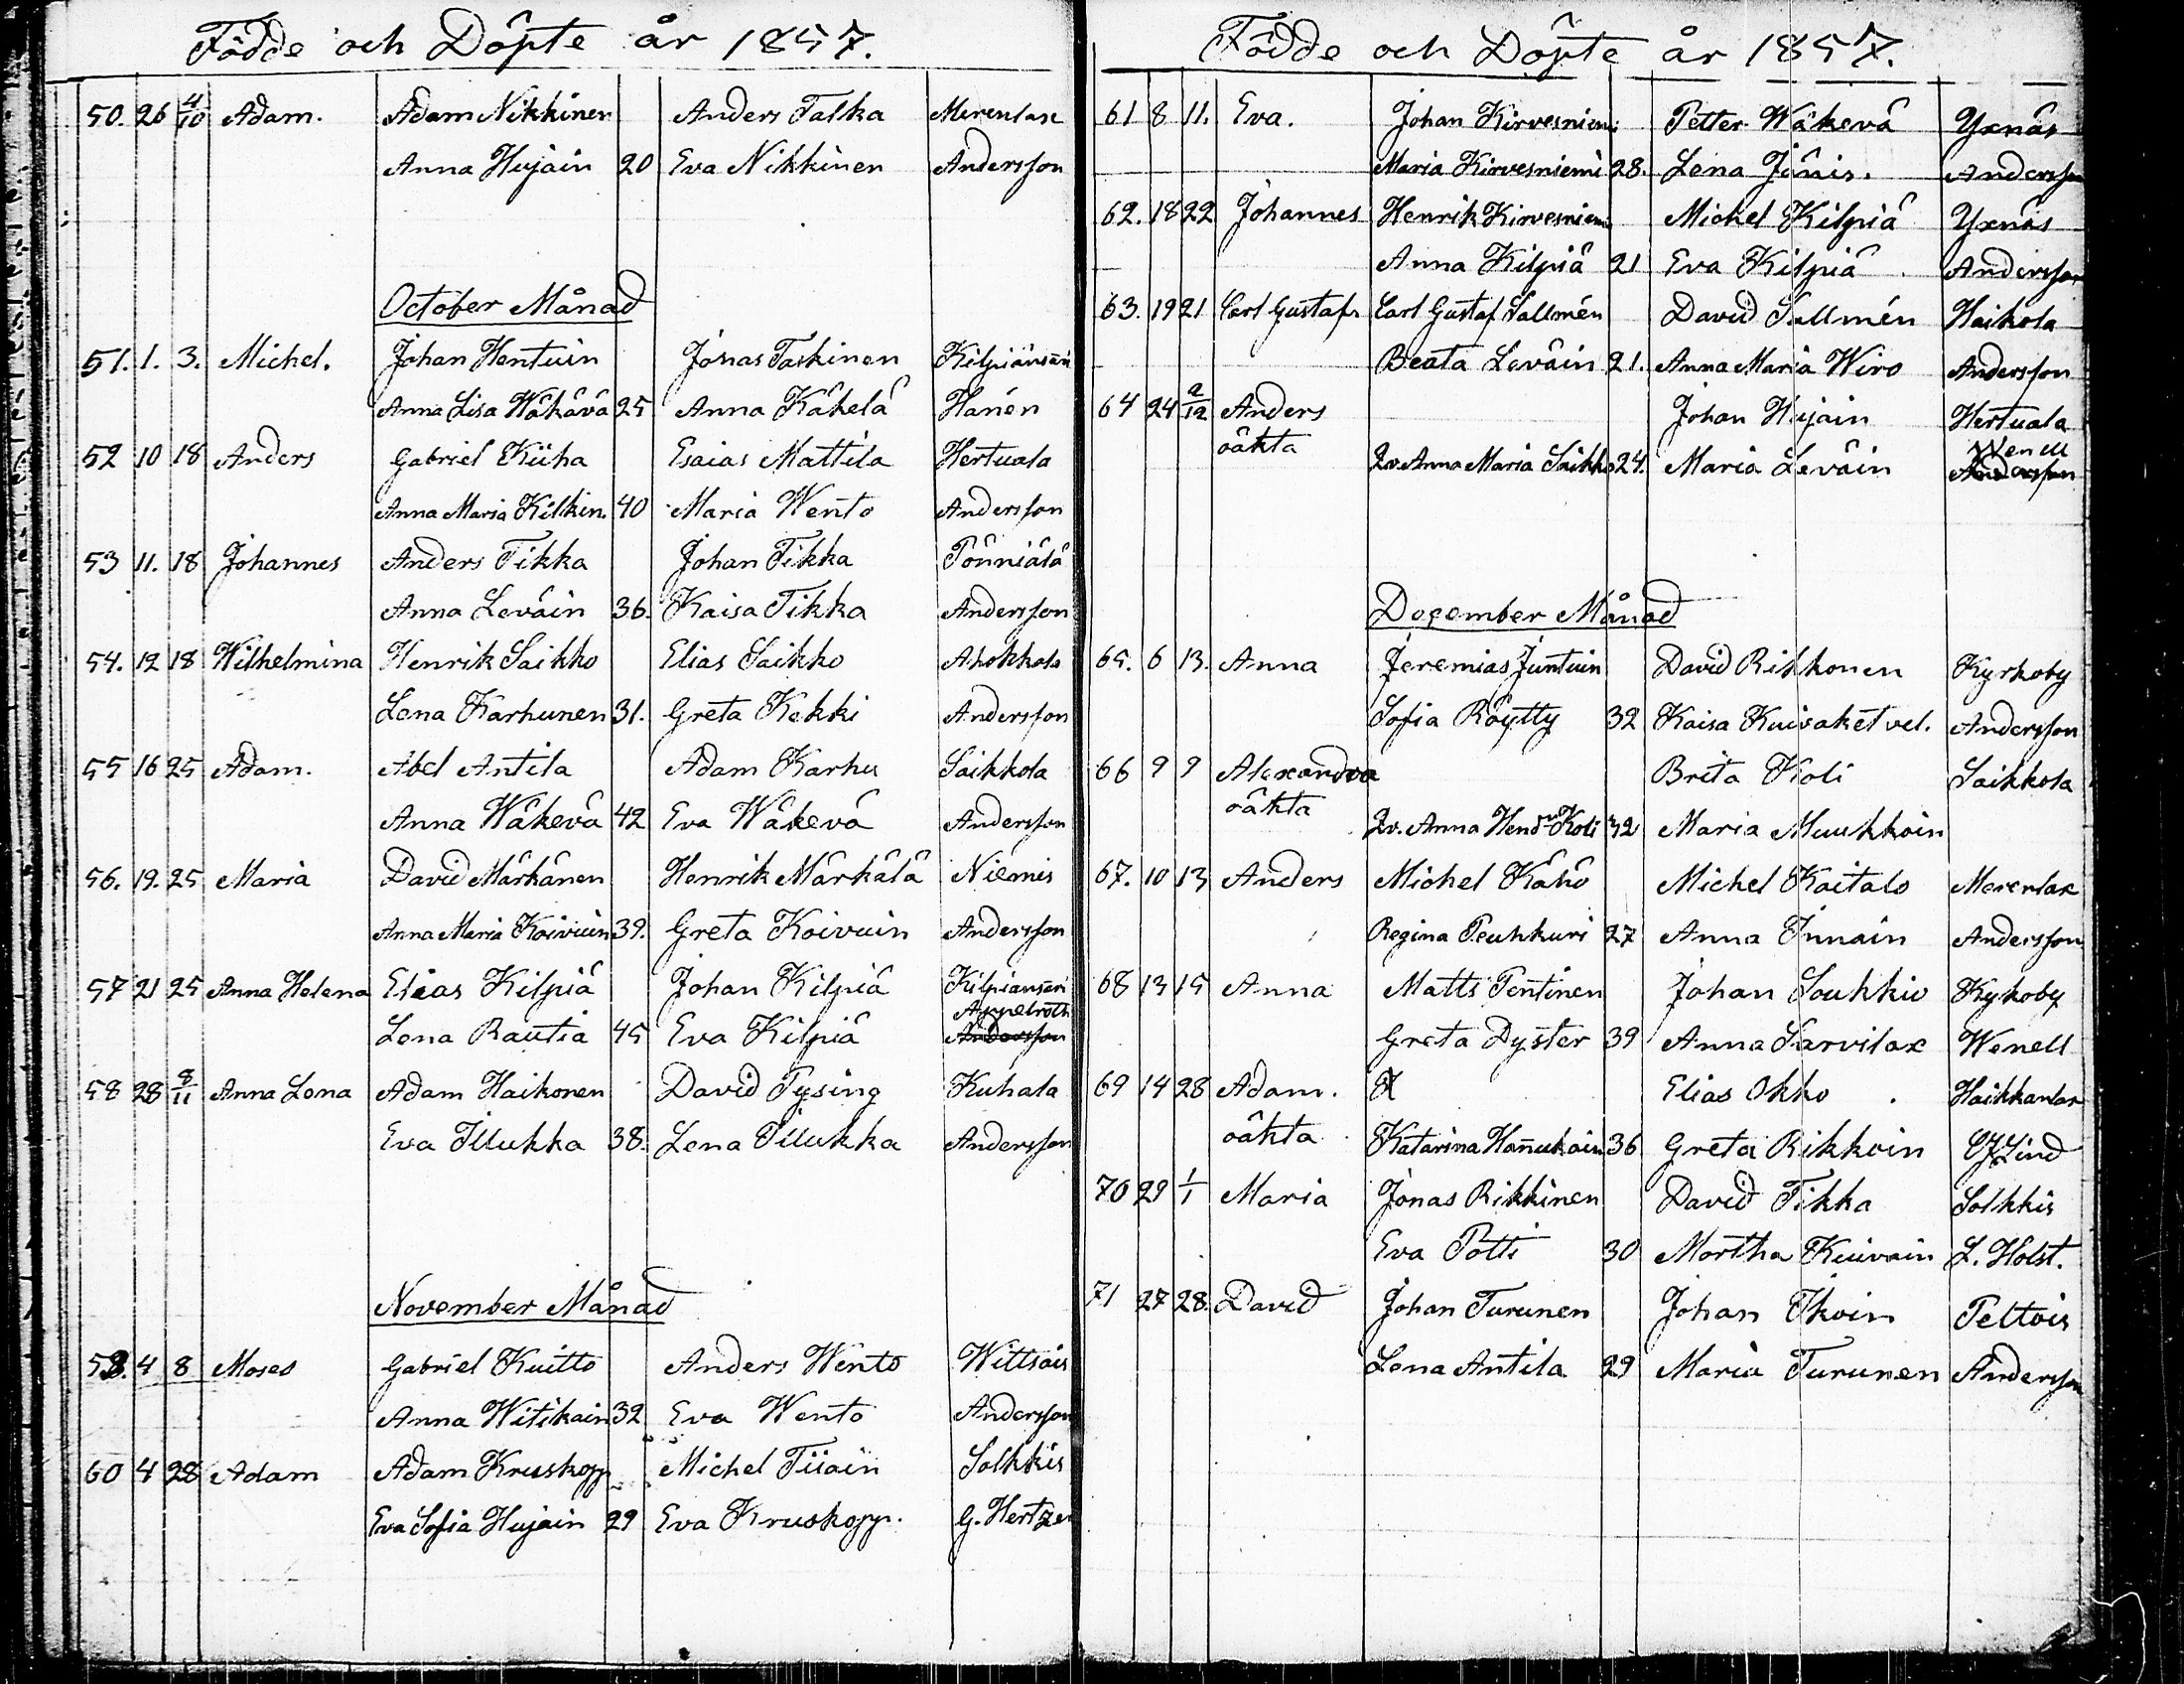 Födde och Döpte år 1857.
50. 26 4/10 Adam. Adam Nikkinen Anders Talka Merenlax
Anna Hujain 20 Eva Nikkinen Andersson
October Månad
51. 1. 3. Michel. Johan Hentuin Jonas Taskinen Kilpiänsari
Anna Lisa Wäkävä 25 Anna Käkelä Hanén
52 10 18 Anders Gabriel Kiiha Esaias Mattila Hertuala
Anna Maria Kilkin. 40 Maria Wento Andersson
53 11. 18 Johannes Anders Tikka Johan Tikka Pönniälä
Anna Leväin 36. Kaisa Tikka Andersson
54. 12 18 Wilhelmina Henrik Saikko Elias Saikko Ahokkala
Lena Karhunen 31. Greta Kekki Andersson
55 16 25 Adam. Abel Antila Adam Karhu Saikkola
Anna Wäkevä 42 Eva Wäkevä Andersson
56. 19. 25 Maria David Märkänen Henrik Märkälä Niemis
Anna Maria Koivuin 39. Greta Koivuin Andersson
57 21 25 Anna Helena Elias Kilpiä Johan Kilpiä Kilpiansari
Appelroth
Lena Rautia 45 Eva Kilpiä Andersson
58 28 8/11 Anna Lena Adam Haikonen David Pysing Kuhala
Eva Illukka 38. Lena Illukka Andersson
November Månad
58. 4 8 Moses Gabriel Kuitto Anders Wento Wittsäis
Anna Witikain 32 Eva Wento Andersson
60 4 28 Adam Adam Kruskopp Michel Tiiäin Solkkis
Eva Sofia Hujain 29 Eva Kruskopp. G. Hertzen
Födde och Döpte år 1857.
61 8 11. Eva. Johan Kirvesniemi Petter Wäkevä Yxnäs
Maria Kirvesniemi 28. Lena Jänis. Andersson
62. 18 22 Johannes Henrik Kirvesniemi Michel Kilpiä Yxnäs
Anna Kilpiä 21 Eva Kilpiä Andersson
63. 19 21 Carl Gustaf Carl Gustaf Sallmén David Sallmén Haikola
Beata Leväin 21. Anna Maria Wiro Andersson
64 24 2/12 Anders Johan Hujain Hertuala
oäkta Qv. Anna Maria Saikko 24. Maria Leväin Wenell
Andersson
December Månad
65. 6 13. Anna Jeremias Juntuin David Rikkonen Kyrkoby
Sofia Röytty 32 Kaisa Kuisaketvel. Andersson
66 9 9 Alexandra Brita Koli Saikkola
oäkta Qv. Anna Hendr Koli 32 Maria Muukkoin
67. 10 13 Anders Michel Kähö Michel Kaitalo Merenlax
Regina Peuhkuri 27 Anna Innain Andersson
68 13 15 Anna Matts Pentinen Johan Soukkio Kykoby
Greta Dyster 39 Anna Sarvilax Wenell
69 14 28 Adam. Elias Okko Haikkanlax
oäkta Katarina Hanukain 36 Greta Rikkoin Lind
70 29 1/1 Maria Jonas Rikkinen David Tikka Solkkis
Eva Potti 30 Martha Kuivain L. Holst.
71 27 28. David Johan Turunen Johan Ikoin Peltois
Lena Antila 29 Maria Turunen Andersson